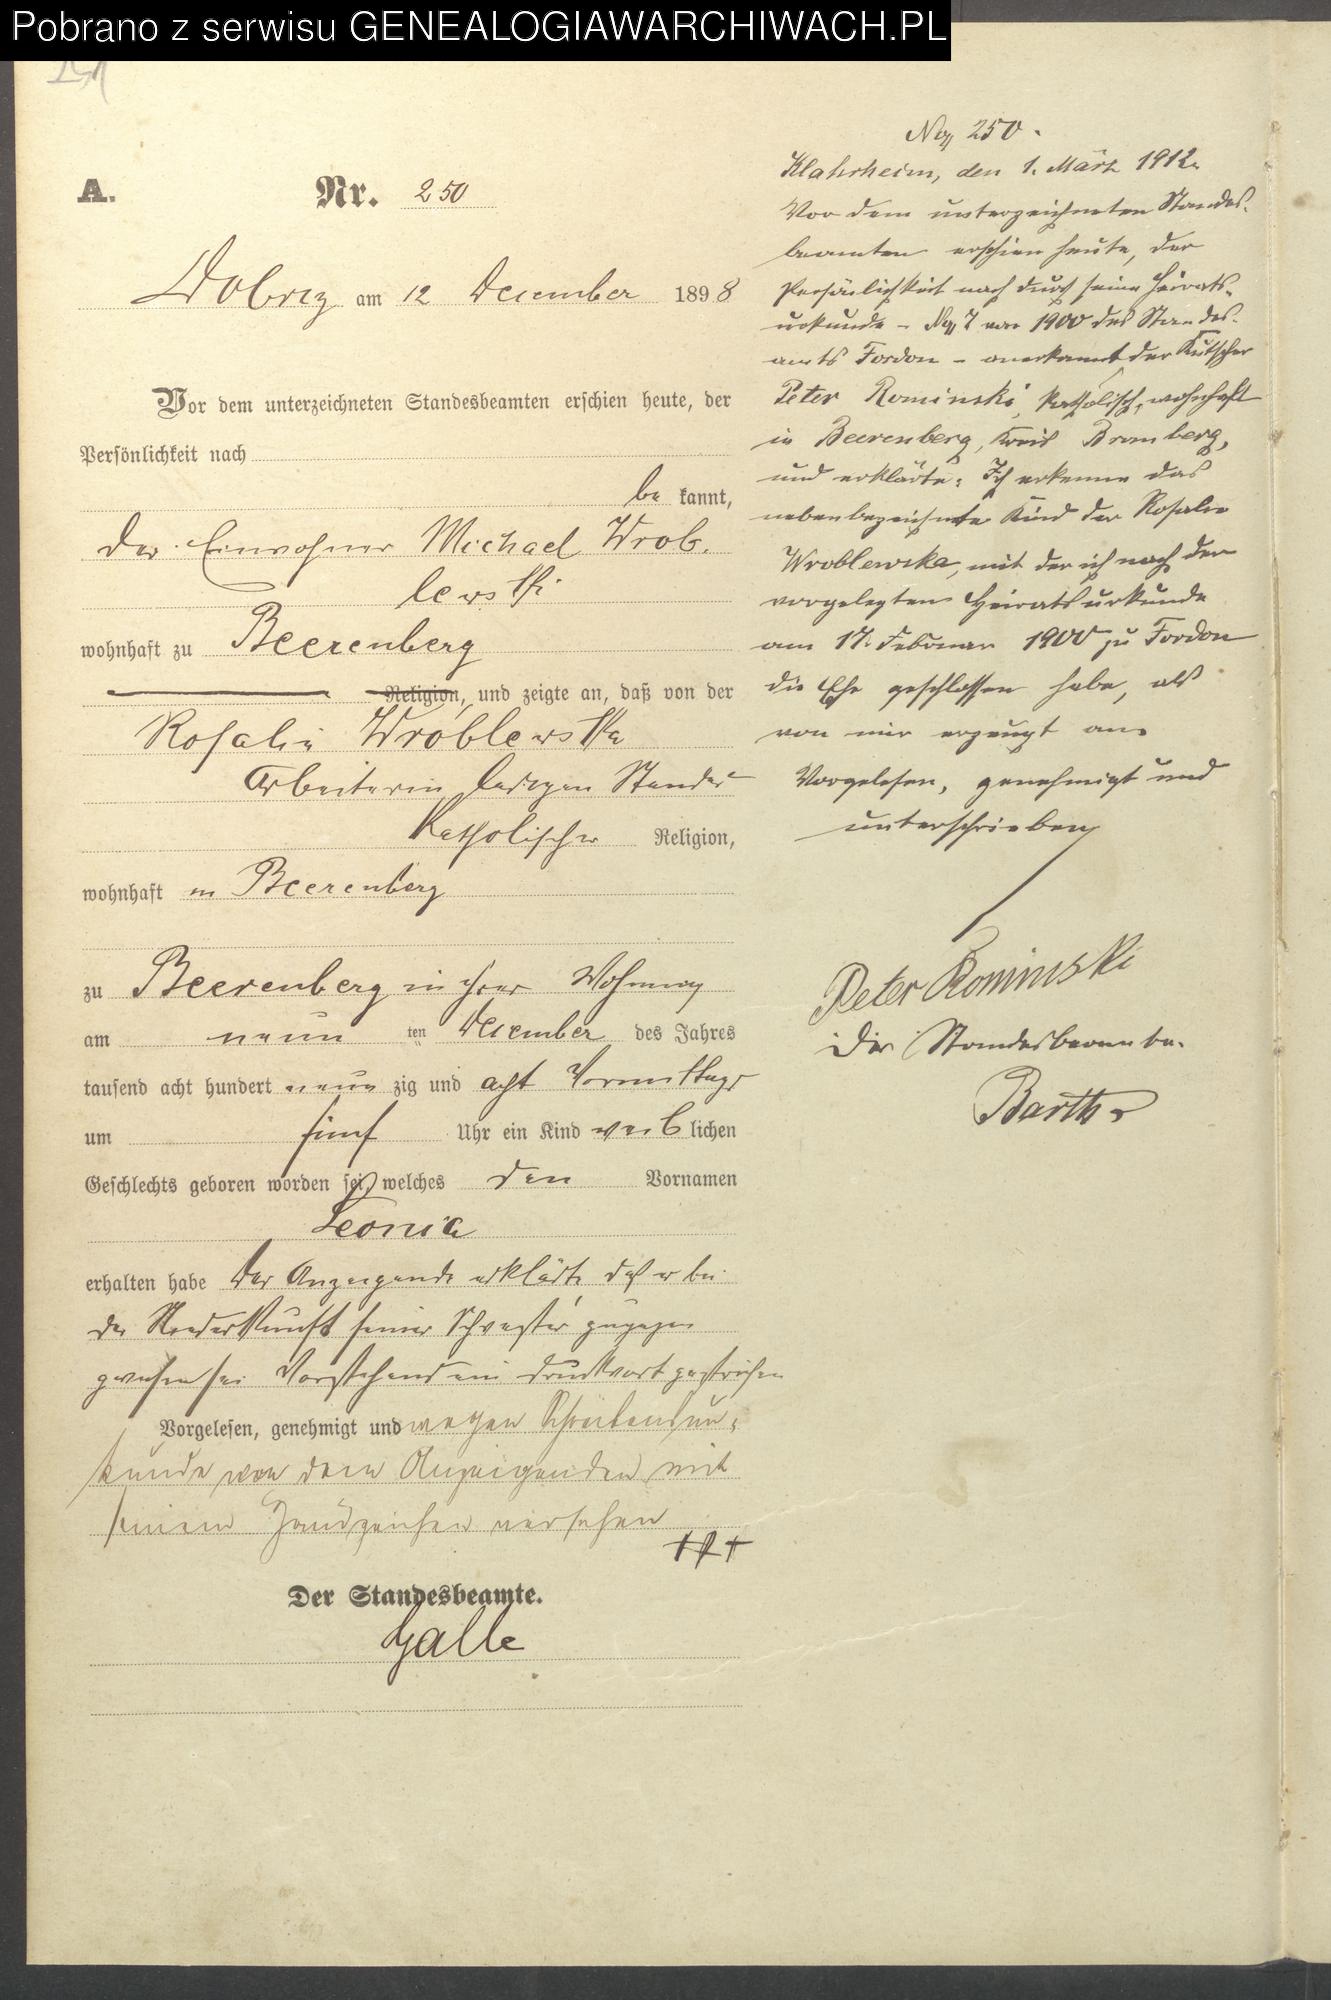 Pobrano z serwisu GENEALOGIAWARCHIWACH.PL
A.
Nr. 250
Dobrcz am 12 December 1898
Vor dem unterzeichneten Standesbeamten erschien heute, der
Persönlichkeit nach
be kannt,
der Einwohner Michael Wrob-
lewski
wohnhaft zu Beerenberg
Religion, und zeigte an, daß von der
Rosalie Wróblewska
Arbeiterin ledigen Standes
Katholischer Religion,
wohnhaft in Beerenberg
zu Beerenberg in ihrer Wohnung
am neun ten December des Jahres
tausend acht hundert neun zig und acht Vormittags
um fünf Uhr ein Kind weiblichen
Geschlechts geboren worden sei, welches den Vornamen
Leonia
erhalten habe Der Anzeigende erklärte daß er bei
der Niederkunft seiner Schwester zugegen
gewesen sei Vorstehend ein Druckwort gestrichen
Vorgelesen, genehmigt und wegen Schreibensun-
kunde von dem Anzeigenden mit
seinem Handzeichen versehen
+++
Der Standesbeamte.
Galle
No 250.
Klahrheim, den 1. März 1912.
Vor dem unterzeichneten Standes-
beamten erschien heute, der
Persönlichkeit nach durch seine Heirats-
urkunde - No 7 von 1900 des Standes-
amts Fordon - anerkannt der Kutscher
Peter Rominski, katholisch, wohnhaft
in Beerenberg, Kreis Bromberg,
und erklärte: Ich erkenne das
nebenbezeichnete Kind der Rosalie
Wroblewska, mit der ich nach der
vorgelegten Heiratsurkunde
am 17. Februar 1900 zu Fordon
die Ehe geschlossen habe, als
von mir erzeugt an.
Vorgelesen, genehmigt und
unterschrieben
Peter Rominski
Der Standesbeamte.